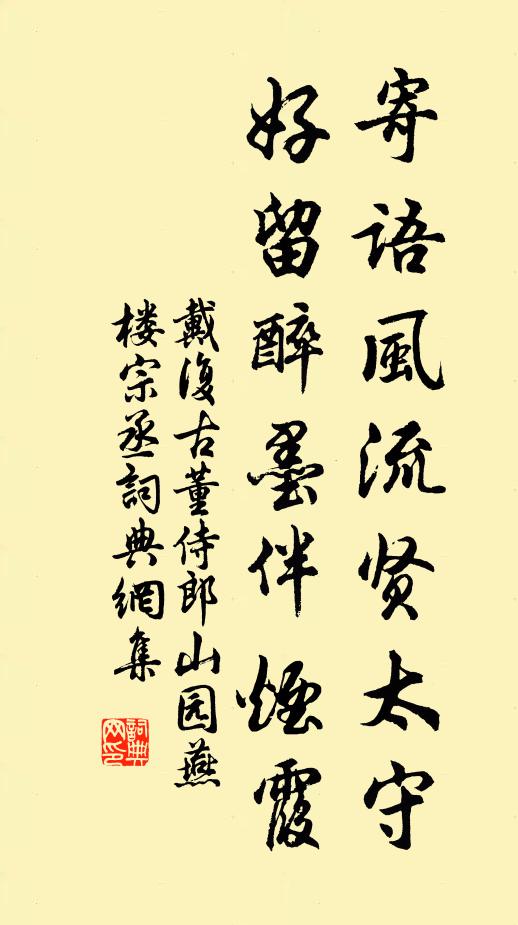 寄語風流贤太守
好留醉墨伴煙霞
戴復古董侍郎山园燕
楼宗丞詞典網集
詞典網印